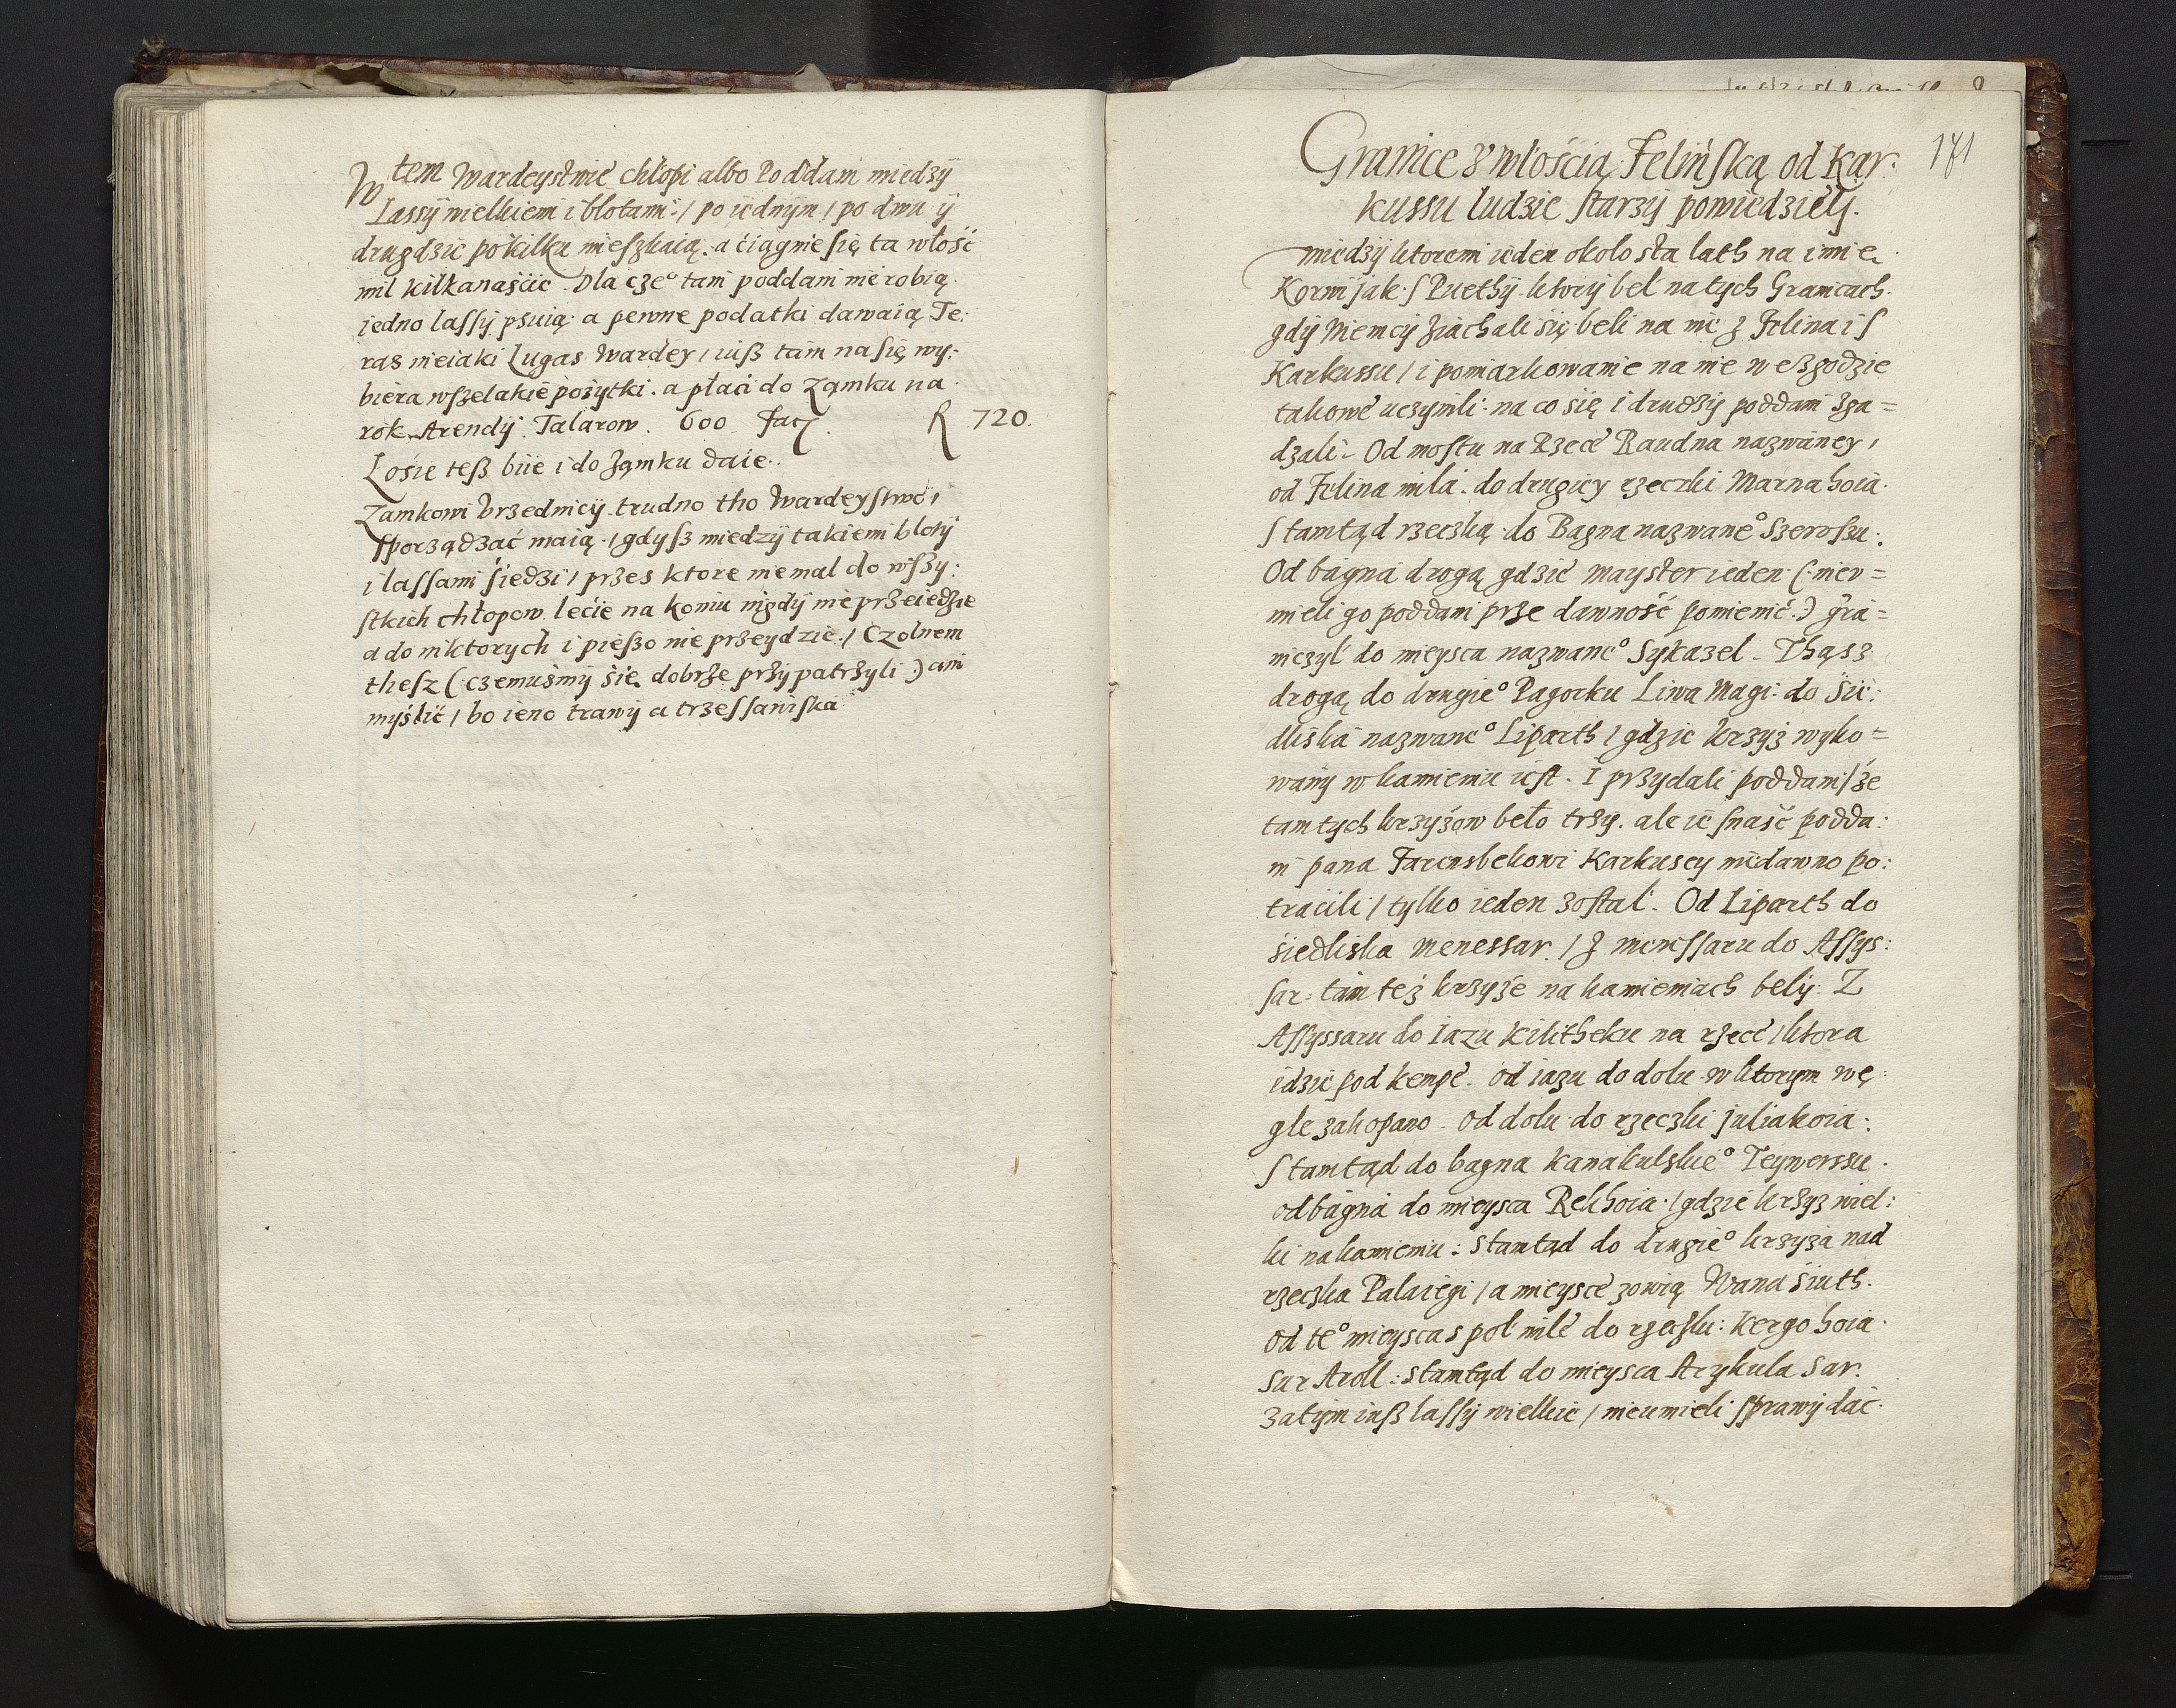 W tem Wardeystwie chłopi albo Poddani miedzÿ
Lassÿ wielkiemi i błotami / po iednÿm / po dwu ÿ
drugdzie po kilku mieszkaią. a ciągnie się ta włość
mil kilkanaście. Dla cze° tam poddani nie robią
iedno lassÿ psuią a pewne podatki dawaią Te:
ras nieiaki Lugas Wardey / iuß tam na się wy:
biera wszelakie pożytki. a płaci do Zamku na
rok Arendÿ Talarow. 600 fac R 720.
Łosie teß biie i do Zamku daie.
Zamkowi Urzednicÿ trudno tho Wardeystwo,
sporządzać maią / gdysz miedzÿ takiemi błotÿ
i lassami siedzi / przes ktore niemal do wszÿ:
stkich chłopow lecie na koniu nigdÿ nie przeiedzie
a do niktorych i pieszo nie przeydzie. / Czolnem
thesz (czemusmÿ sie dobrze przÿpatrzyli) ani
myślić / bo ieno trawÿ a trzessawiska
181
Granice z włością Felinską od Kar:
kussu ludzie starzÿ powiedzielÿ.
miedzÿ ktoremi ieden okolo sta lath na imie
Kornijak s Puethÿ ktorÿ bel na tych Granicach
gdÿ Niemcÿ ziachali się beli na nie z Felina i s
Karkussu / i pomiarkowanie na nie we zgodzie
takowe uczynili na co się i drudzÿ poddani zga=
dzali. Od mostu na Rzece Raudna nazwaney,
od Felina mila. do drugiey rzeczki Marnahoia
stamtąd rzeczką do Bagna nazwane° Szerossu:
Od bagna drogą gdzie mayster ieden (nieu=
mieli go poddani prze dawność pomienić) gra=
niczył do mieysca nazwane° Sykazel. Thąsz
drogą do drugie° Pagorku Liwa Magi: do sie:
dliska nazwane° Liparth / gdzie krzyż wyko=
wany w kamieniu iest. I przydali poddani / że
tam tych krzyżow beło trzy. ale ie snać podda:
ni pana Farensbekowi Karkuscy niedawno po:
tracili / tylko ieden został. Od Liparth do
siedliska Menessar. / Z menessaru do Assys:
sar: tam też krzyże na kamieniach belÿ. Z
Assyssaru do Iazu Kilitheku na rzece / ktora
idzie pod kempe. Od iazu do dołu w ktorym wę:
gle zakopano. Od dołu do rzeczki Juliakoia:
stamtąd do bagna Kanakulskie° Teywerssu.
od bagna do mieysca Rekhoia / gdzie krzyż wiel:
ki na kamieniu: stamtąd do drugie° krzyża nad
rzeczka Palaiegi / a mieysce zowią Wana siuth.
Od te° mieysca s poł mile do rzeczki: Kergohoia
sur Aroll: stamtąd do mieysca Arykula sar.
Zatÿm inß lassÿ wielkie / nieumieli sprawÿ dać.